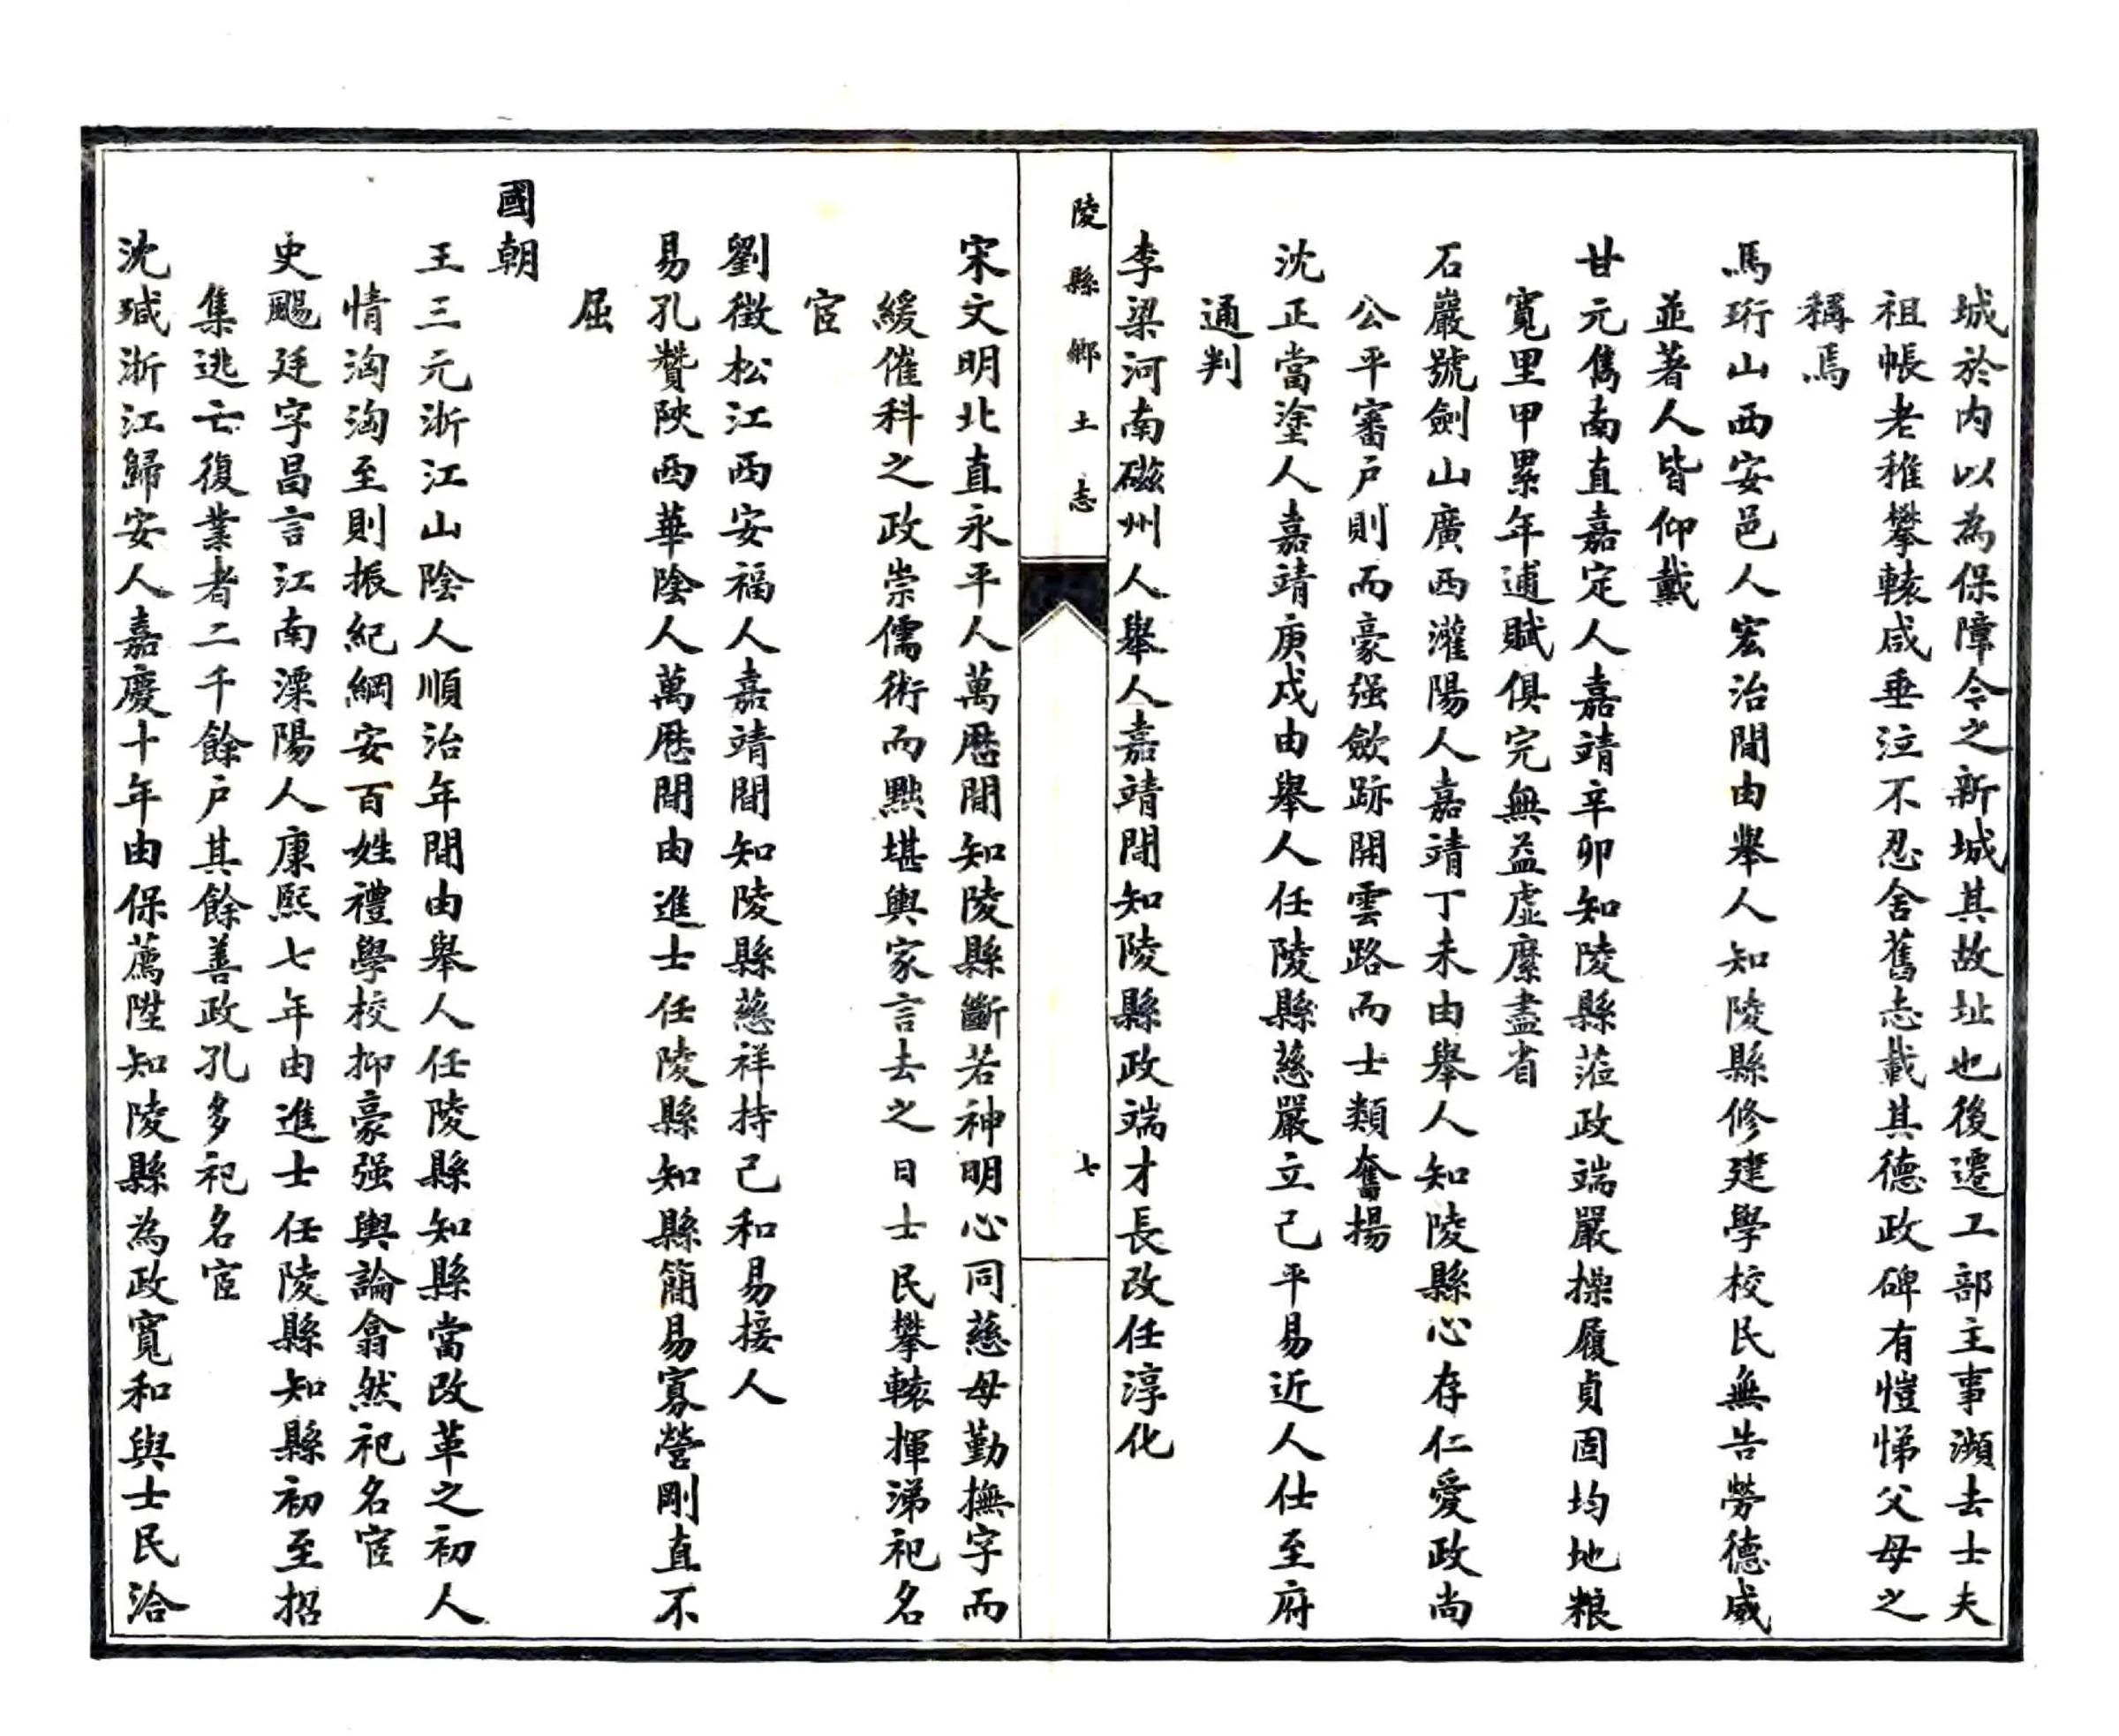 城於内以為保障今之新城其故址也後遷工部主事瀕去士夫
祖帳老稚攀轅咸垂泣不忍舍舊志載其德政碑有愷悌父母之
稱焉
馬珩山西安邑人宏治間由舉人知陵縣修建學校民無告勞德威
並著人皆仰戴
甘元雋南直嘉定人嘉靖辛卯知陵縣蒞政端嚴操履貞固均地粮
寬里甲累年逋賦俱完無益虛縻盡省
石巖號劍山廣西灌陽人嘉靖丁未由舉人知陵縣心存仁愛政尚
公平審戶則而豪强歛跡開雲路而士類奮揚
沈正當塗人嘉靖庚戌由舉人任陵縣慈嚴立己平易近人仕至府
通判
李梁河南磁州人舉人嘉靖間知陵縣政端才長改任淳化
陵縣鄉土志
七
宋文明北直永平人萬厯間知陵縣斷若神明心同慈母勤撫字而
緩催科之政崇儒術而黜堪輿家言去之日士民攀轅揮涕祀名
宦
劉徵松江西安福人嘉靖間知陵縣慈祥持己和易接人
易孔贊陝西華陰人萬厯間由進士任陵縣知縣簡易寡營剛直不
屈
國朝
王三元浙江山陰人順治年間由舉人任陵縣知縣當改革之初人
情洶洶至則振紀綱安百姓禮學校抑豪强輿論翕然祀名宦
史颺廷字昌言江南溧陽人康熙七年由進士任陵縣知縣初至招
集逃亡復業者二千餘戶其餘善政孔多祀名宦
沈瑊浙江歸安人嘉慶十年由保薦陞知陵縣為政寬和與士民洽